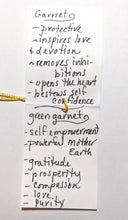 Garnet
- protective
- inspires love
& devotion
- removes inhi-
bitions
- opens the heart
- bestows self
confidence
green garnet
- self empowerment
- powerful mother
Earth
- gratitude
- prosperity
- compassion
- love
- purity